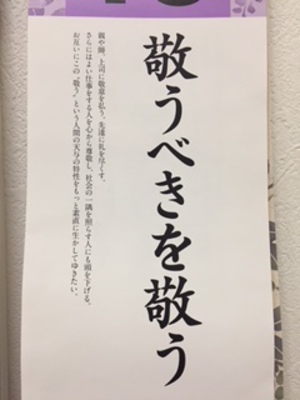 敬うべきを敬う
親や師、上司に敬意を払う。先達に礼を尽くす。
さらにはよい仕事をする人を心から尊敬し、社会の一隅を照らす人にも頭を下げる。
お互いにこの“敬う”という人間の天与の特性をもっと素直に生かしてゆきたい。